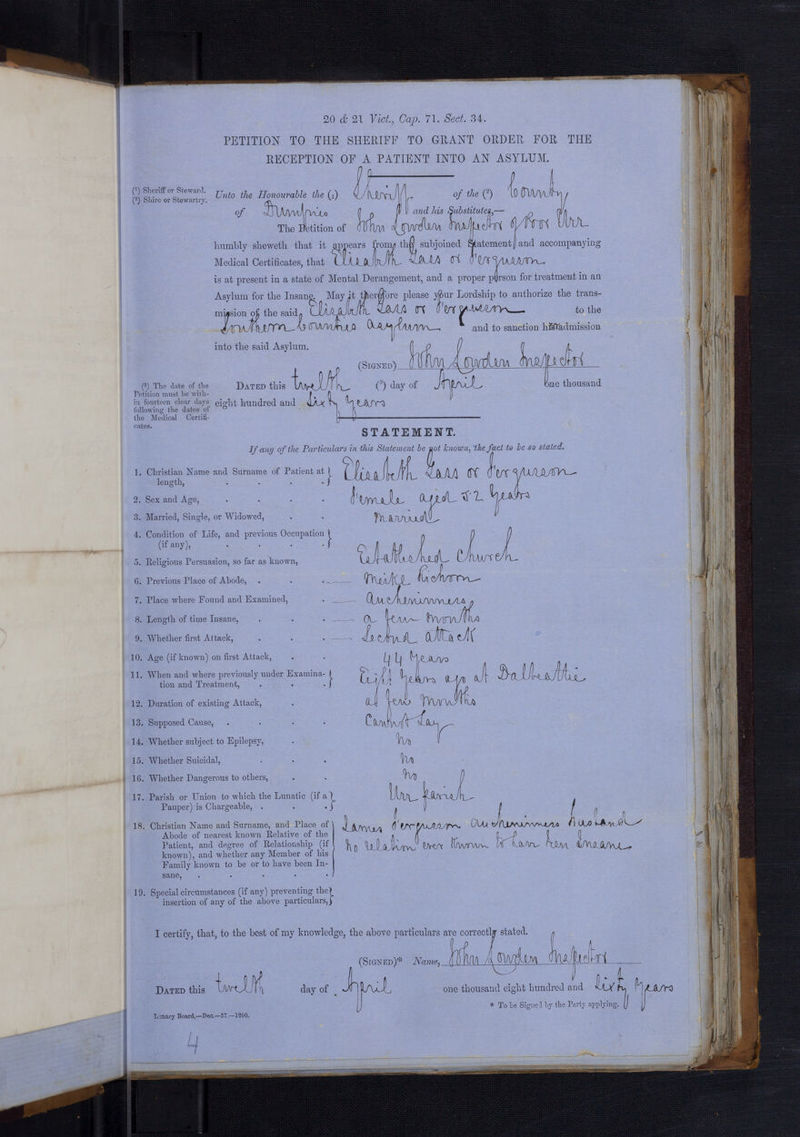 20 & 21 Vict., Cap. 71. Sect. 34.
PETITION TO THE SHERIFF TO GRANT ORDER FOR THE
RECEPTION OF A PATIENT INTO AN ASYLUM.
(¹) Sheriff or Steward.
(²) Shire or Stewartry.
Unto the Honourable the (¹) Sheriff of the (²) County
of Dumfries and his Substitutes,—
The Petition of John Lowden Inspector of Poor Urr
humbly sheweth that it appears from the subjoined Statement and accompanying
Medical Certificates, that Elizabeth Lass or Ferguson
is at present in a state of Mental Derangement, and a proper person for treatment in an
Asylum for the Insane. May it therefore please your Lordship to authorize the trans-
mission of the said Elizabeth Lass or Ferguson to the
Southern Counties Asylum and to sanction her admission
into the said Asylum.
(SIGNED) John Lowden Inspector
(³) The date of the
Petition must be with-
in fourteen clear days
following the dates of
the Medical Certifi-
cates.
DATED this twelfth (³) day of April one thousand
eight hundred and sixty years
STATEMENT.
If any of the Particulars in this Statement be not known, the fact to be so stated.
1. Christian Name and Surname of Patient at length, Elisabeth Lass or Ferguson
2. Sex and Age, Female aged 52 years
3. Married, Single, or Widowed, Married
4. Condition of Life, and previous Occupation (if any),
5. Religious Persuasion, so far as known, Established Church
6. Previous Place of Abode, Meikle Richorn
7. Place where Found and Examined, Aucheninnes
8. Length of time Insane, a few months
9. Whether first Attack, Second attack
10. Age (if known) on first Attack, 44 Years
11. When and where previously under Examina-tion and Treatment, Eight Years ago at Dalbeattie
12. Duration of existing Attack, a few months
13. Supposed Cause, Cannot say
14. Whether subject to Epilepsy, No
15. Whether Suicidal, No
16. Whether Dangerous to others, No
17. Parish or Union to which the Lunatic (if a Pauper) is Chargeable, Urr parish
18. Christian Name and Surname, and Place of Abode of nearest known Relative of the Patient, and degree of Relationship (if known), and whether any Member of his Family known to be or to have been In-sane, James Ferguson Aucheninnes husband
no relation ever known to have been insane
19. Special circumstances (if any) preventing the insertion of any of the above particulars,
I certify, that, to the best of my knowledge, the above particulars are correctly stated.
(SIGNED)* Name, John Lowden Inspector
DATED this twelfth day of April one thousand eight hundred and sixty years
* To be Signed by the Party applying.
Lunacy Board,—Den.—57.—1200.
4